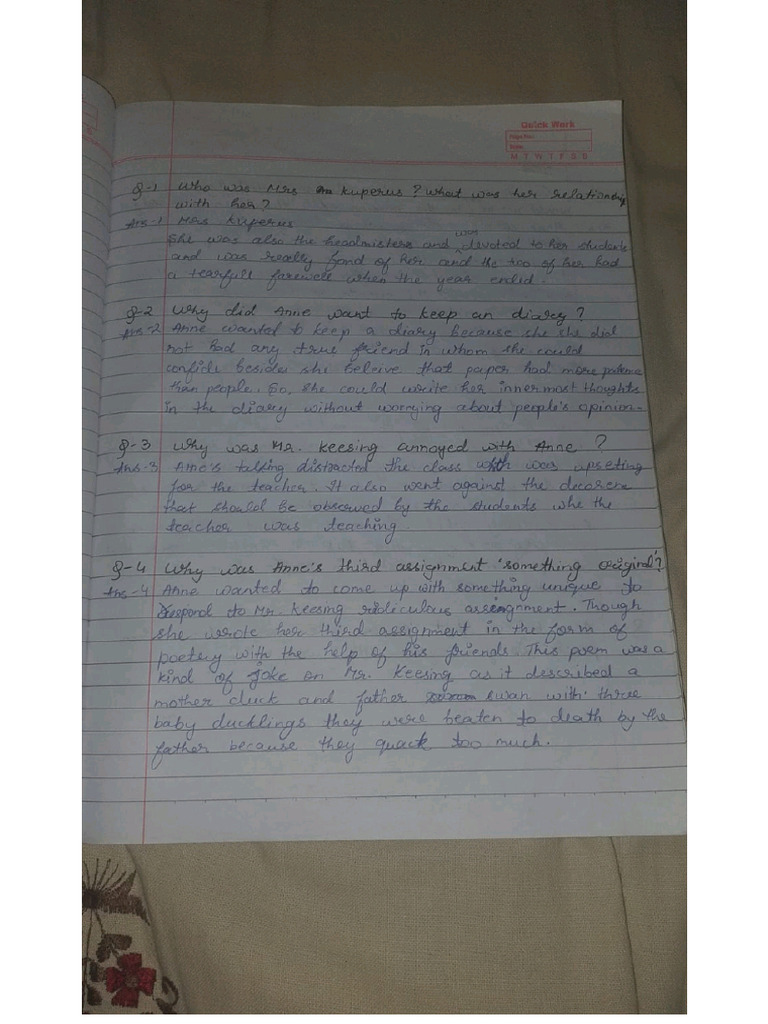 Quick Work
Page No:
Date:
M T W T F S S
Q-1 Who was Mrs Kuperus? What was her relationship
with her?
Ans-1 Mrs Kuperus
She was also the headmisters and was devoted to her students
and was really fond of her and the too of her had
a tearfull farewell when the year endid.
Q-2 Why did Anne want to keep an diary?
Ans-2 Anne wanted to keep a diary because she she did
not had any true friend in whom she could
confide besides she beleive that paper had more patience
then people. So, she could write her inner most thoughts
in the diary without worrying about people's opinion.
Q-3 Why was Mr. Keesing annoyed with Anne ?
Ans-3 Anne's talking distracted the class was upseting
for the teacher. It also went against the
that should be observed by the students whe the
teacher was teaching
Q-4 Why was Anne's third assignment 'something original'?
Ans-4 Anne wanted to come up with something unique to
respond to Mr. Keesing ridiculous assignment. Though
she wrote her third assignment in the form of
poetery with the help of his friends. This poem was a
kind of joke on Mr. Keesing as it described a
mother duck and father swan with three
baby ducklings they were beaten to death by the
father because they quack too much.